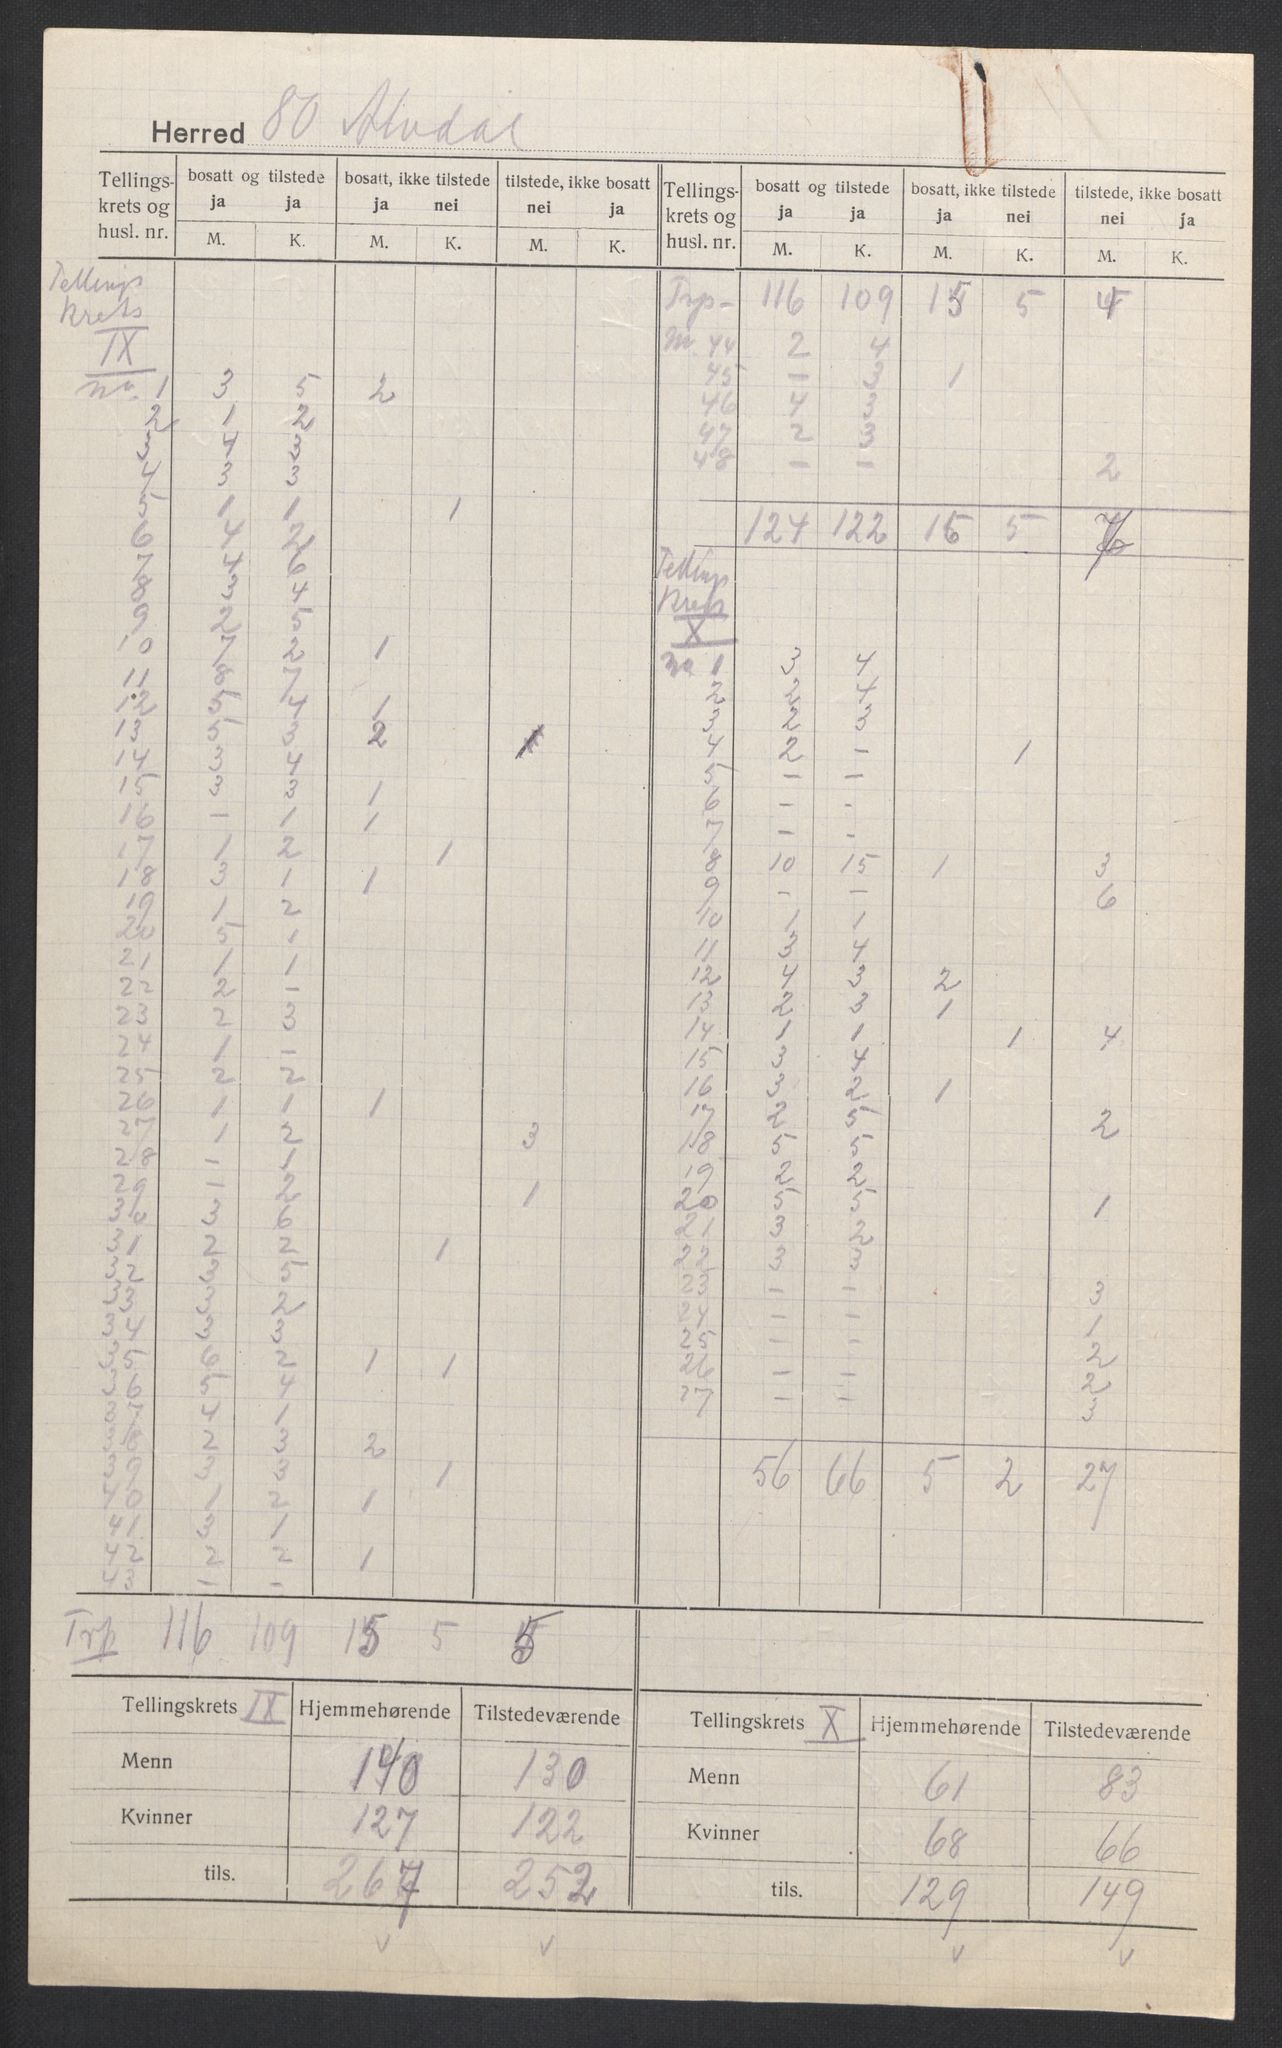 Herred 80 Alvdal
Tellings- bosatt og tilstede bosatt, ikke tilstede tilstede, ikke bosatt
krets og ja ja ja nei nei ja
husl. nr. M. K. M. K. M. K.
Tellings
krets
IX
No. 1 3 5 2
2 1 2
3 4 3
4 3 3
5 1 1 1
6 4 2
7 4 6
8 3 4
9 2 5
10 7 2 1
11 8 7
12 5 4 1
13 5 3 2
14 3 4
15 3 3 1
16 - 1 1
17 1 2 1
18 3 1 1
19 1 2
20 5 1
21 1 1
22 2 -
23 2 3
24 1 -
25 2 2
26 1 1 1
27 1 2 3
28 - 1
29 1 2 1
30 3 6
31 2 2 1
32 3 5
33 3 2
34 3 3
35 6 2 1 1
36 5 4
37 4 1
38 2 3 2
39 3 3 1
40 1 2 1
41 3 1
42 2 2 1
43 - -
Trp 116 109 15 5
Tellings- bosatt og tilstede bosatt, ikke tilstede tilstede, ikke bosatt
krets og ja ja ja nei nei ja
husl. nr. M. K. M. K. M. K.
Trp- 116 109 15 5 4
No. 44 2 4
45 - 3 1
46 4 3
47 2 3
48 - - 2
124 122 16 5
Tellings
krets
X
No 1 3 4
2 2 4
3 2 3
4 2 - 1
5 - -
6 - -
7 - -
8 10 15 1 3
9 - - 6
10 1 1
11 3 4
12 4 3 2
13 2 3 1
14 1 1 1 4
15 3 4
16 3 2 1
17 2 5 2
18 5 5
19 2 2
20 5 5 1
21 3 2
22 3 3
23 - - 3
24 - - 1
25 - - 2
26 - - 2
27 - - 3
56 66 5 2 27
Tellingskrets IX Hjemmehørende Tilstedeværende
Menn 140 130
Kvinner 127 122
tils. 267 252
Tellingskrets X Hjemmehørende Tilstedeværende
Menn 61 83
Kvinner 68 66
tils. 129 149